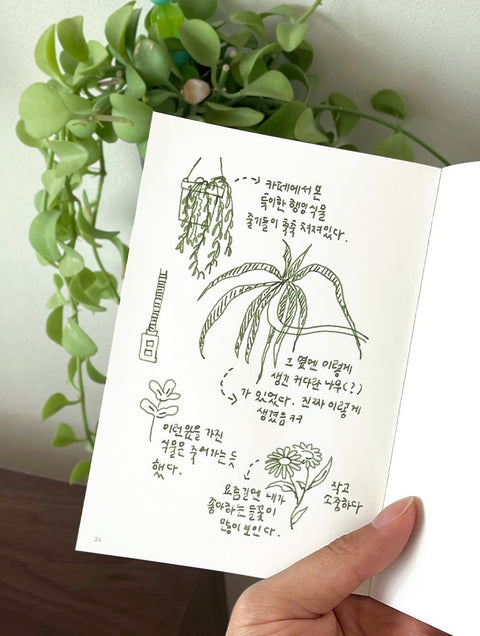 카페에서 본
독특한 행잉식물
줄기들이 축축 쳐져있다.
그 옆엔 이렇게
생긴 커다란 나무(?)
가 있었다. 진짜 이렇게
생겼음ㅋㅋ
이런 잎을 가진
식물은 죽어가는 듯
했다.
요즘 길엔 내가
좋아하는 들꽃이
많이 보인다.
작고
소중하다